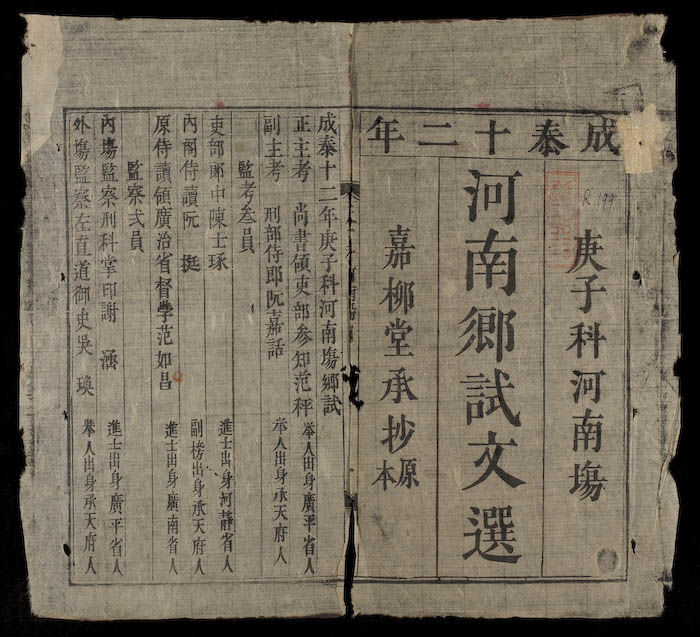 成泰十二年
庚子科河南塲
河南鄉試文選
嘉柳堂承抄原本
成泰十二年庚子科河南塲鄉試
正主考 尚書領吏部參知范秤 舉人出身廣平省人
副主考 刑部侍郎阮嘉話 舉人出身承天府人
監考叁員
吏部郎中陳士琢 進士出身河靜省人
內閣侍讀阮 挺 副榜出身承天府人
原侍讀領廣治省督學范如昌 進士出身廣南省人
監察弍員
內塲監察刑科掌印謝 涵 進士出身廣平省人
外塲監察左直道御史吳 瑍 舉人出身承天府人
R.199